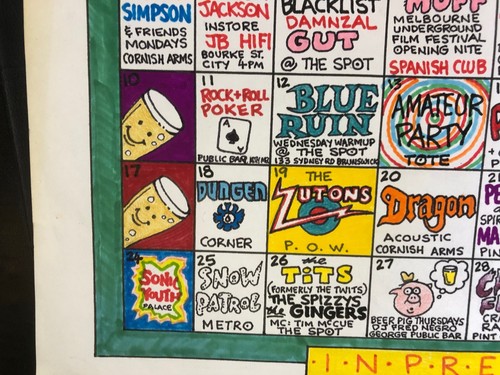 SIMPSON
& FRIENDS
MONDAYS
CORNISH ARMS
JACKSON
INSTORE
JB HIFI
BOURKE ST.
CITY 4PM
BLACKLIST
DAMNZAL
GUT
@ THE SPOT
MUFF
MELBOURNE
UNDERGROUND
FILM FESTIVAL
OPENING NITE
SPANISH CLUB
10
11
ROCK+ROLL
POKER
A
PUBLIC BAR
12
BLUE
RUIN
WEDNESDAY WARMUP
@ THE SPOT
133 SYDNEY RD BRUNSWICK
13
AMATEUR
PARTY
TOTE
17
18
DUNGEN
CORNER
19
THE
ZUTONS
P.O.W.
20
Dragon
ACOUSTIC
CORNISH ARMS
21
24
SONIC
YOUTH
PALACE
25
SNOW
PATROL
METRO
26
the
TiTS
(FORMERLY THE TWITS)
THE SPIZZYS
the GINGERS
MC: TIM McCUE
THE SPOT
27
BEER PIG THURSDAYS
DJ FRED NEGRO
GEORGE PUBLIC BAR
28
·I·N·P·R·E